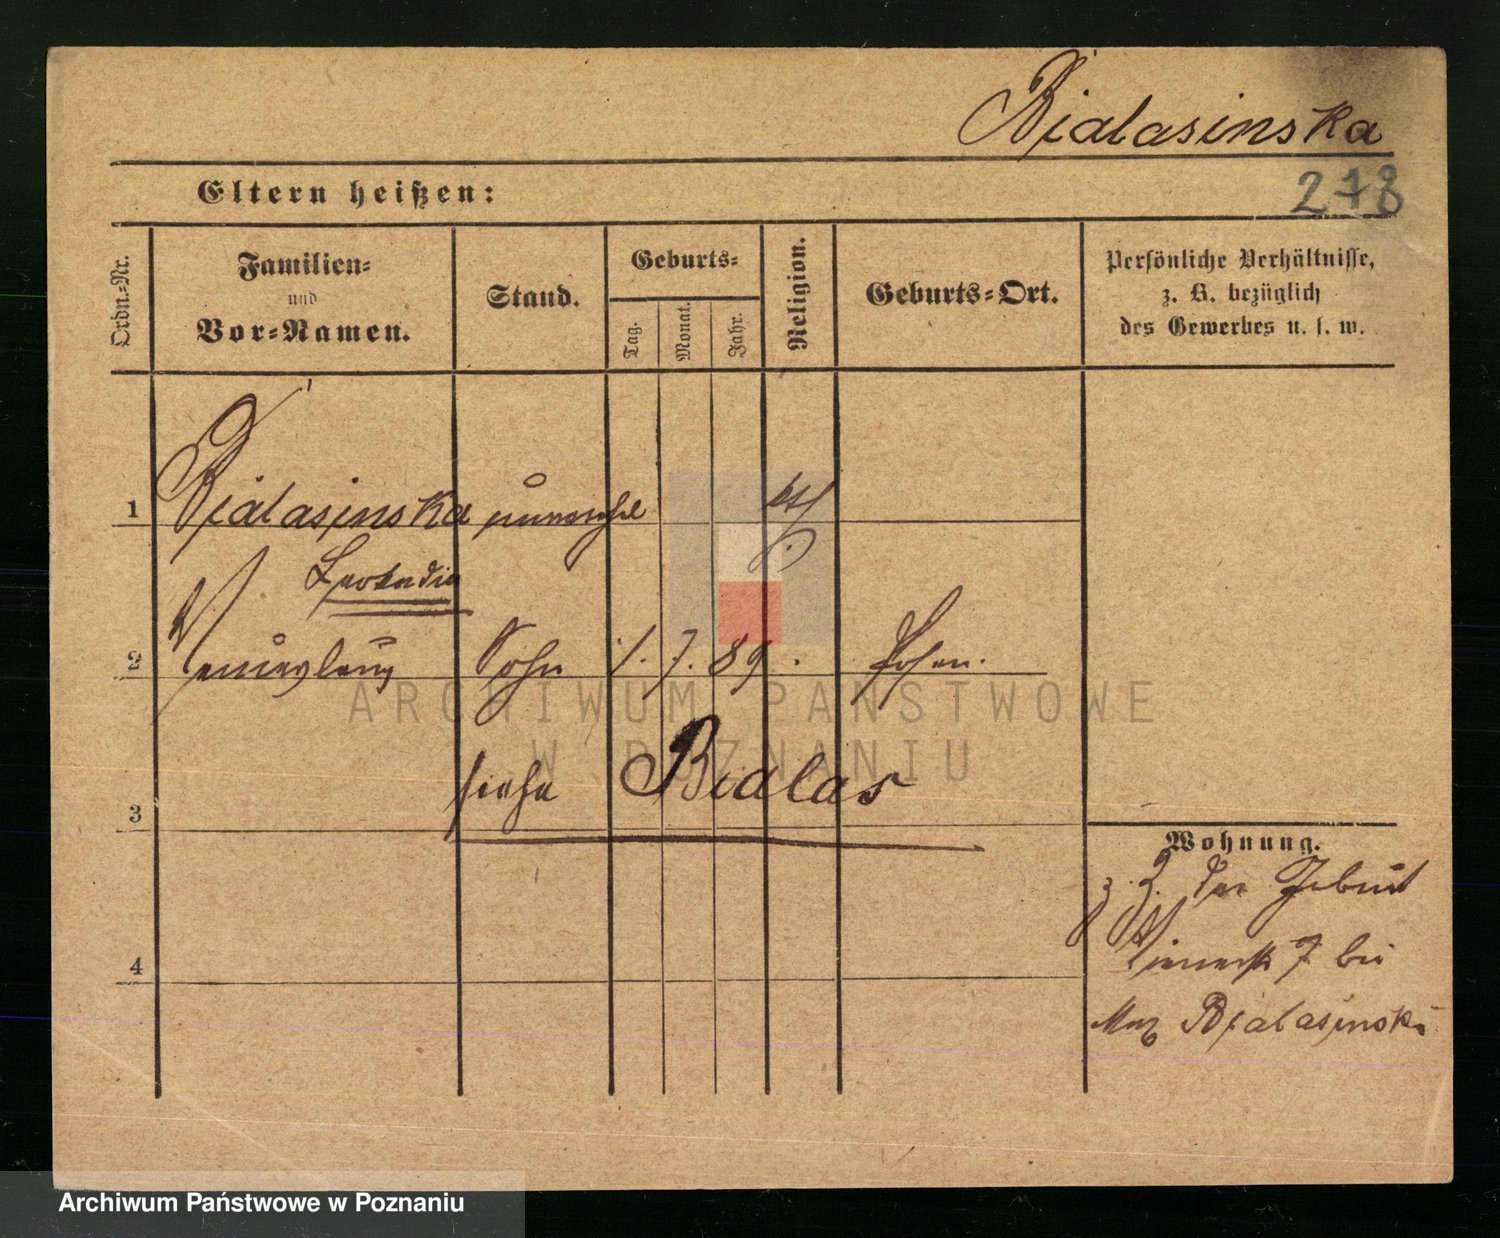 Bialasinska
278
Eltern heißen:
Ordn.=Nr.
Familien=
und
Vor=Namen.
Stand.
Geburts=
Tag.
Monat.
Jahr.
Religion.
Geburts=Ort.
Persönliche Verhältnisse,
z. B. bezüglich
des Gewerbes u. s. w.
1 Bialasinska unverehl
Leokadia
2 Sohn 1. 7. 89. Posen.
ARCHIWUM PAŃSTWOWE
W POZNANIU
3 siehe Bialas
Wohnung.
z. Z. der Geburt
7 bei
Bialasinski
4
Archiwum Państwowe w Poznaniu